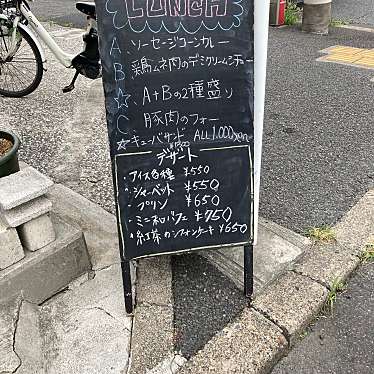 LUNCH
A. ソーセージコーンカレー
B 鶏ムネ肉のデミクリームシチュー
☆. A+Bの2種盛り
C 豚肉のフォー
☆キューバサンド ALL 1,000yen
デザート
・アイス各種 ¥550
・シャーベット ¥550
・プリン ¥650
・ミニ和パフェ ¥750
・紅茶のシフォンケーキ ¥650